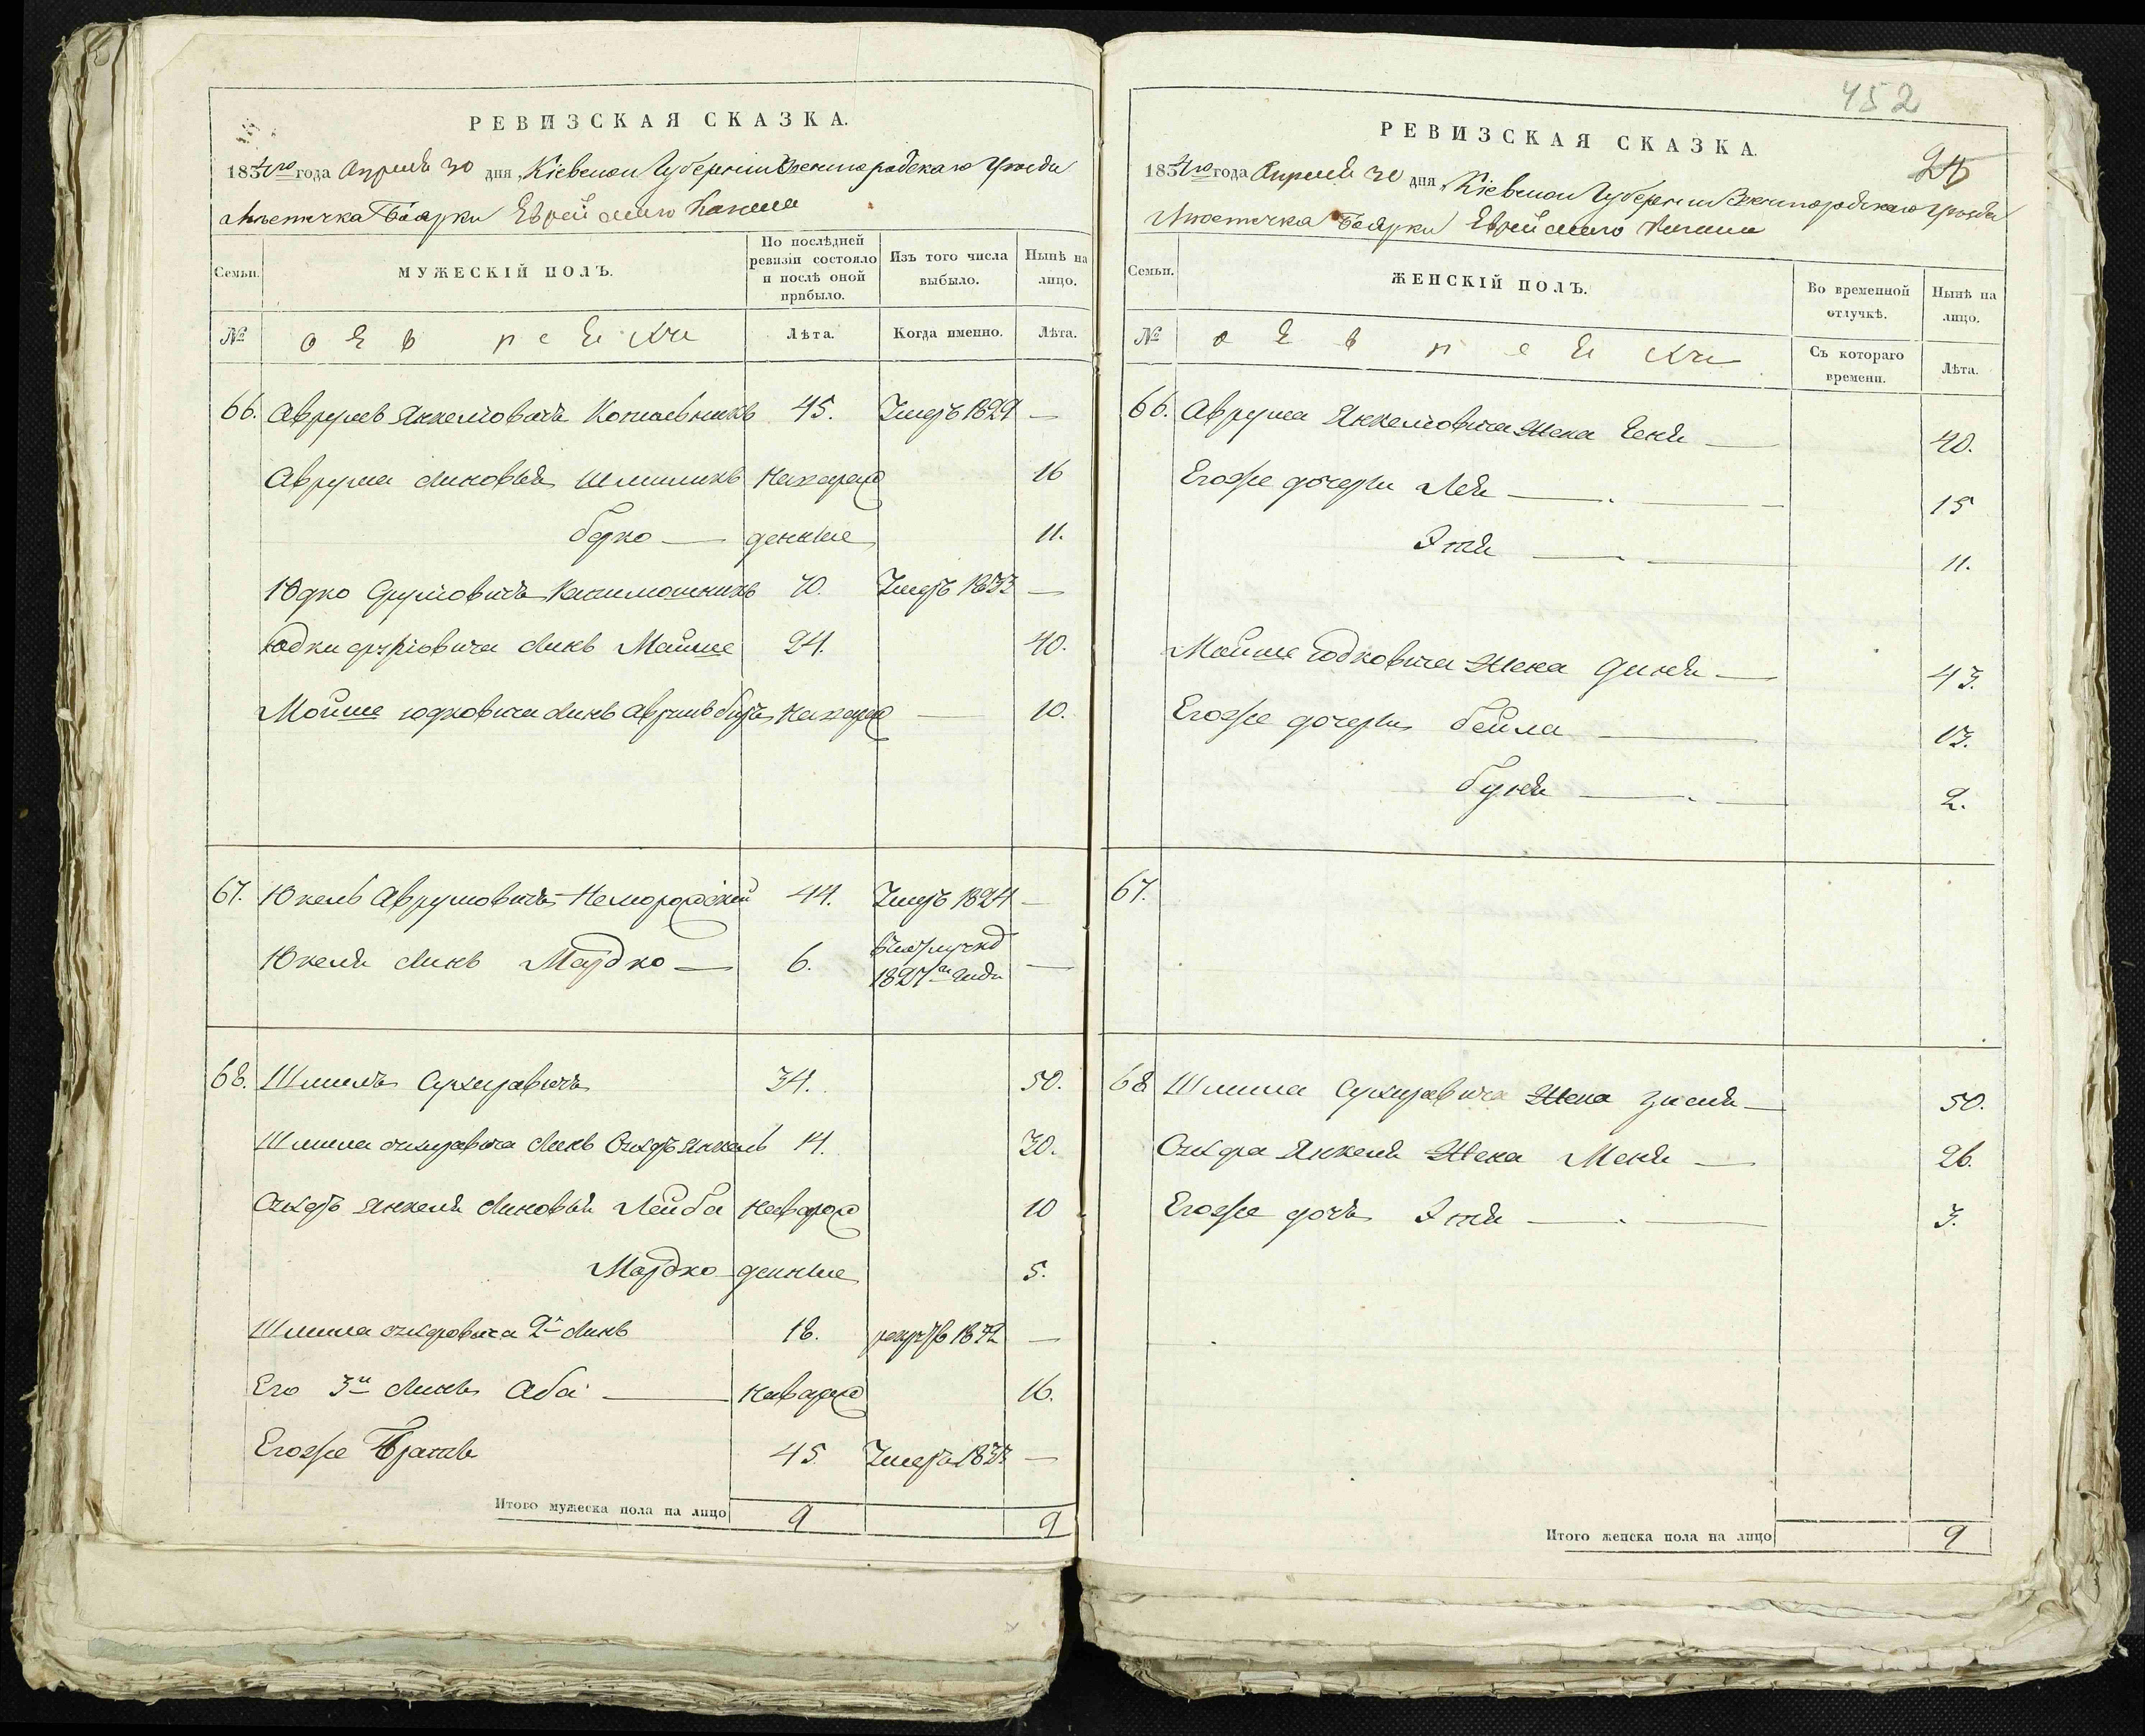 РЕВИЗСКАЯ СКАЗКА.
1834го года Апреля 30 дня, Кіевской Губерніи Звенигородскаго Уезда
Мѣстечка Боярки Еврейскаго Кагала
Семьи. МУЖЕСКІЙ ПОЛЪ. По послѣдней ревизіи состояло и послѣ оной прибыло. Изъ того числа выбыло. Нынѣ на лицо.
№ Лѣта. Когда именно. Лѣта.
66. Аврумъ Янкелювичъ 45. Умеръ 1829 —
Аврума сыновья Шмиликъ Новорож 16
Берко — денные 11.
Юдко Сруліовичъ 70. Умеръ 1833 —
Юдки Сруліовича сынъ Мойше 24. 40.
Мойше Юдковича сынъ Аврумъ Беръ Новорож — 10.
67. Юкель Аврумовичъ 44. Умеръ 1824 —
Юкеля сынъ Мордко — 6. 1827 года —
68. Шмиль 34. 50.
Шмила сынъ Янкель 14. 30.
Янкеля сыновья Лейба Новорож 10
Мордко денные 5.
Шмила 2й сынъ 18. —
Его 3й сынъ Аба — Новорож 16.
Егоже Братъ 45 Умеръ 1833 —
Итого мужеска пола на лицо 9 9
452
РЕВИЗСКАЯ СКАЗКА.
1834го года Апреля 30 дня, Кіевской Губерніи Звенигородскаго Уезда
Мѣстечка Боярки Еврейскаго Кагала
Семьи. ЖЕНСКІЙ ПОЛЪ. Во временной отлучкѣ. Нынѣ на лицо.
№ Съ котораго времени. Лѣта.
66. Аврума Янкелювича Жена Геня — 40.
Егоже дочери Лея — 15
Этя — 11.
Мойше Юдковича Жена Диня — 43.
Егоже дочери Бейла — 13.
Буня — 2.
67.
68 Шмила Жена Зисля — 50.
Янкеля Жена Меня — 26.
Егоже дочь Этя — 3.
Итого женска пола на лицо 9